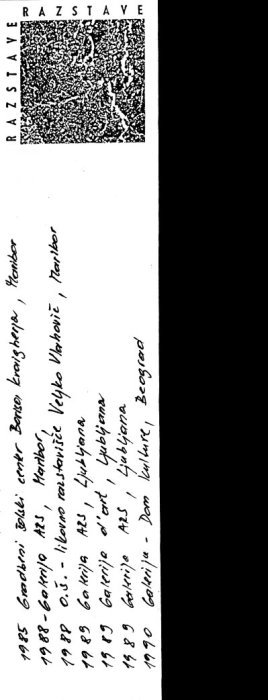 RAZSTAVE
RAZSTAVE
1985 Gradbeni šolski center Borisa Kraigherja, Maribor
1988 - Galerija ARS, Maribor,
1988 O.Š. - likovno razstavišče Veljko Vlahovič, Maribor
1989 Galerija ARS, Ljubljana
1989 Galerija d'art, Ljubljana
1989 Galerija ARS, Ljubljana
1990 Galerija - Dom kulture, Beograd